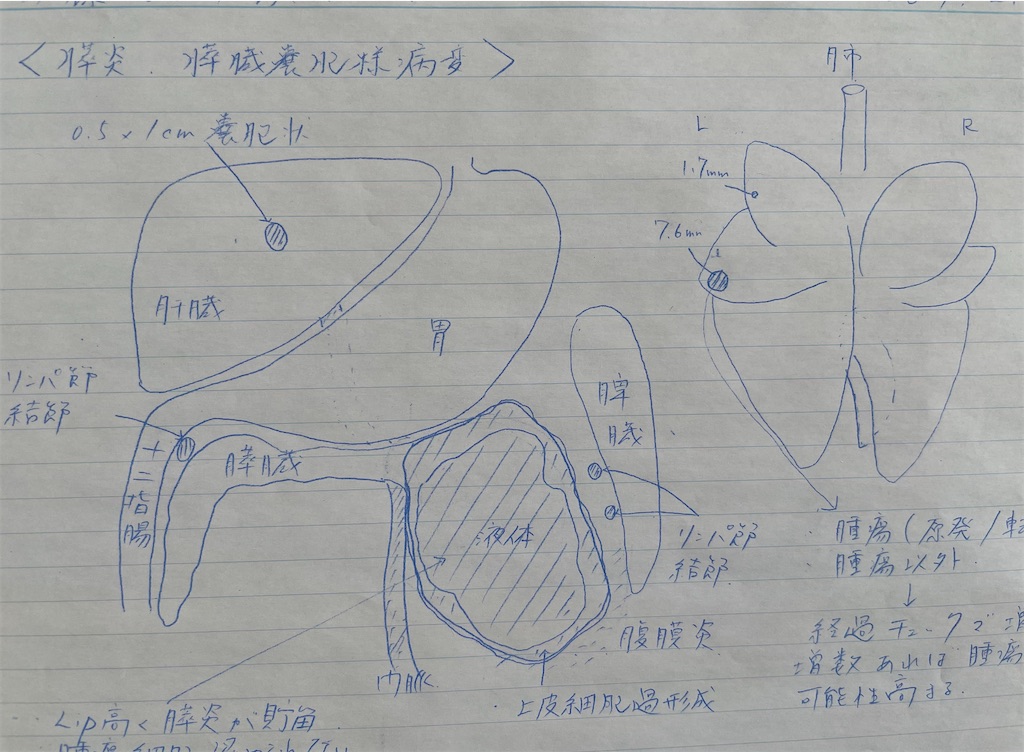 <膵炎. 膵臓嚢胞様病変>
0.5×1cm 嚢胞状
肺
L
R
1.7mm
7.6mm
肝臓
胃
リンパ節
結節
十二指腸
膵臓
脾臓
液体
リンパ節
結節
腹膜炎
門脈
上皮細胞過形成
・腫瘍(原発/転
・腫瘍以外
↓
経過チェックで増
増数あれば腫瘍
可能性高まる.
Lip高く膵炎が